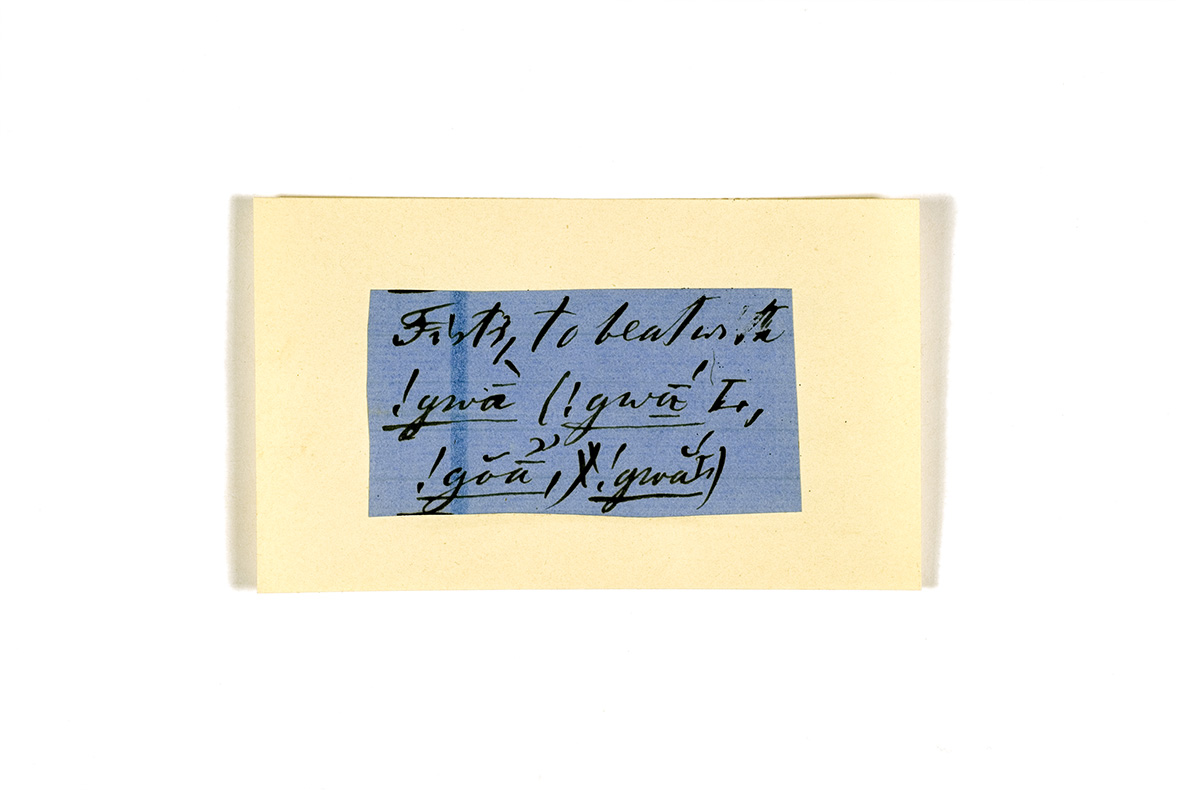 Fists, to beat with
!gwā̀ (!gwā́ Ir,
!gŏā, )(!gwā̆́ Ir)